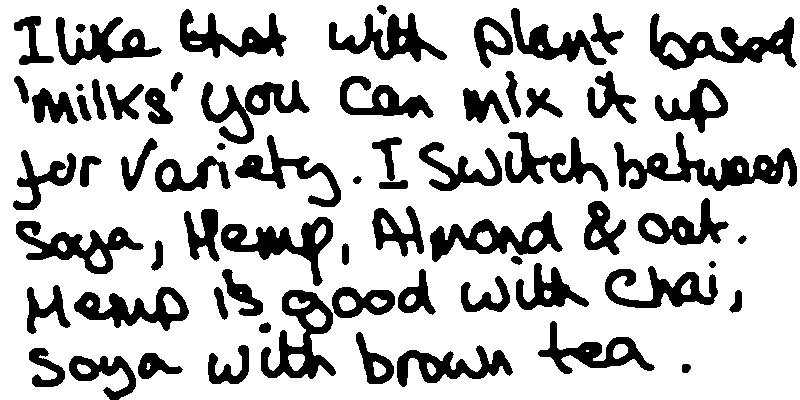 I like that with plant based
'milks' you can mix it up
for variety. I switch between
Soya, Hemp, Almond & oat.
Hemp is good with Chai,
Soya with brown tea.